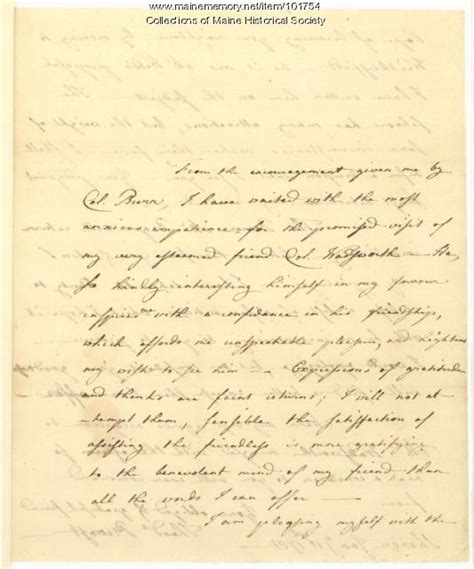 www.mainememory.net/item/101754
Collections of Maine Historical Society
From the encouragement given me by
Col. Burr, I have waited with the most
anxious impatience for the promised visit of
my very esteemed friend Col. Wadsworth — His
so kindly interesting himself in my favour
inspires with a confidence in his friendship,
which affords me unspeakable pleasure, and heightens
my wish to see him — Expressions of gratitude
and thanks are faint returns; I will not at
-tempt them, sensible the satisfaction of
assisting the friendless is more gratifying
to the benevolent mind of my friend than
all the words I can offer —
I am pleasing myself with the